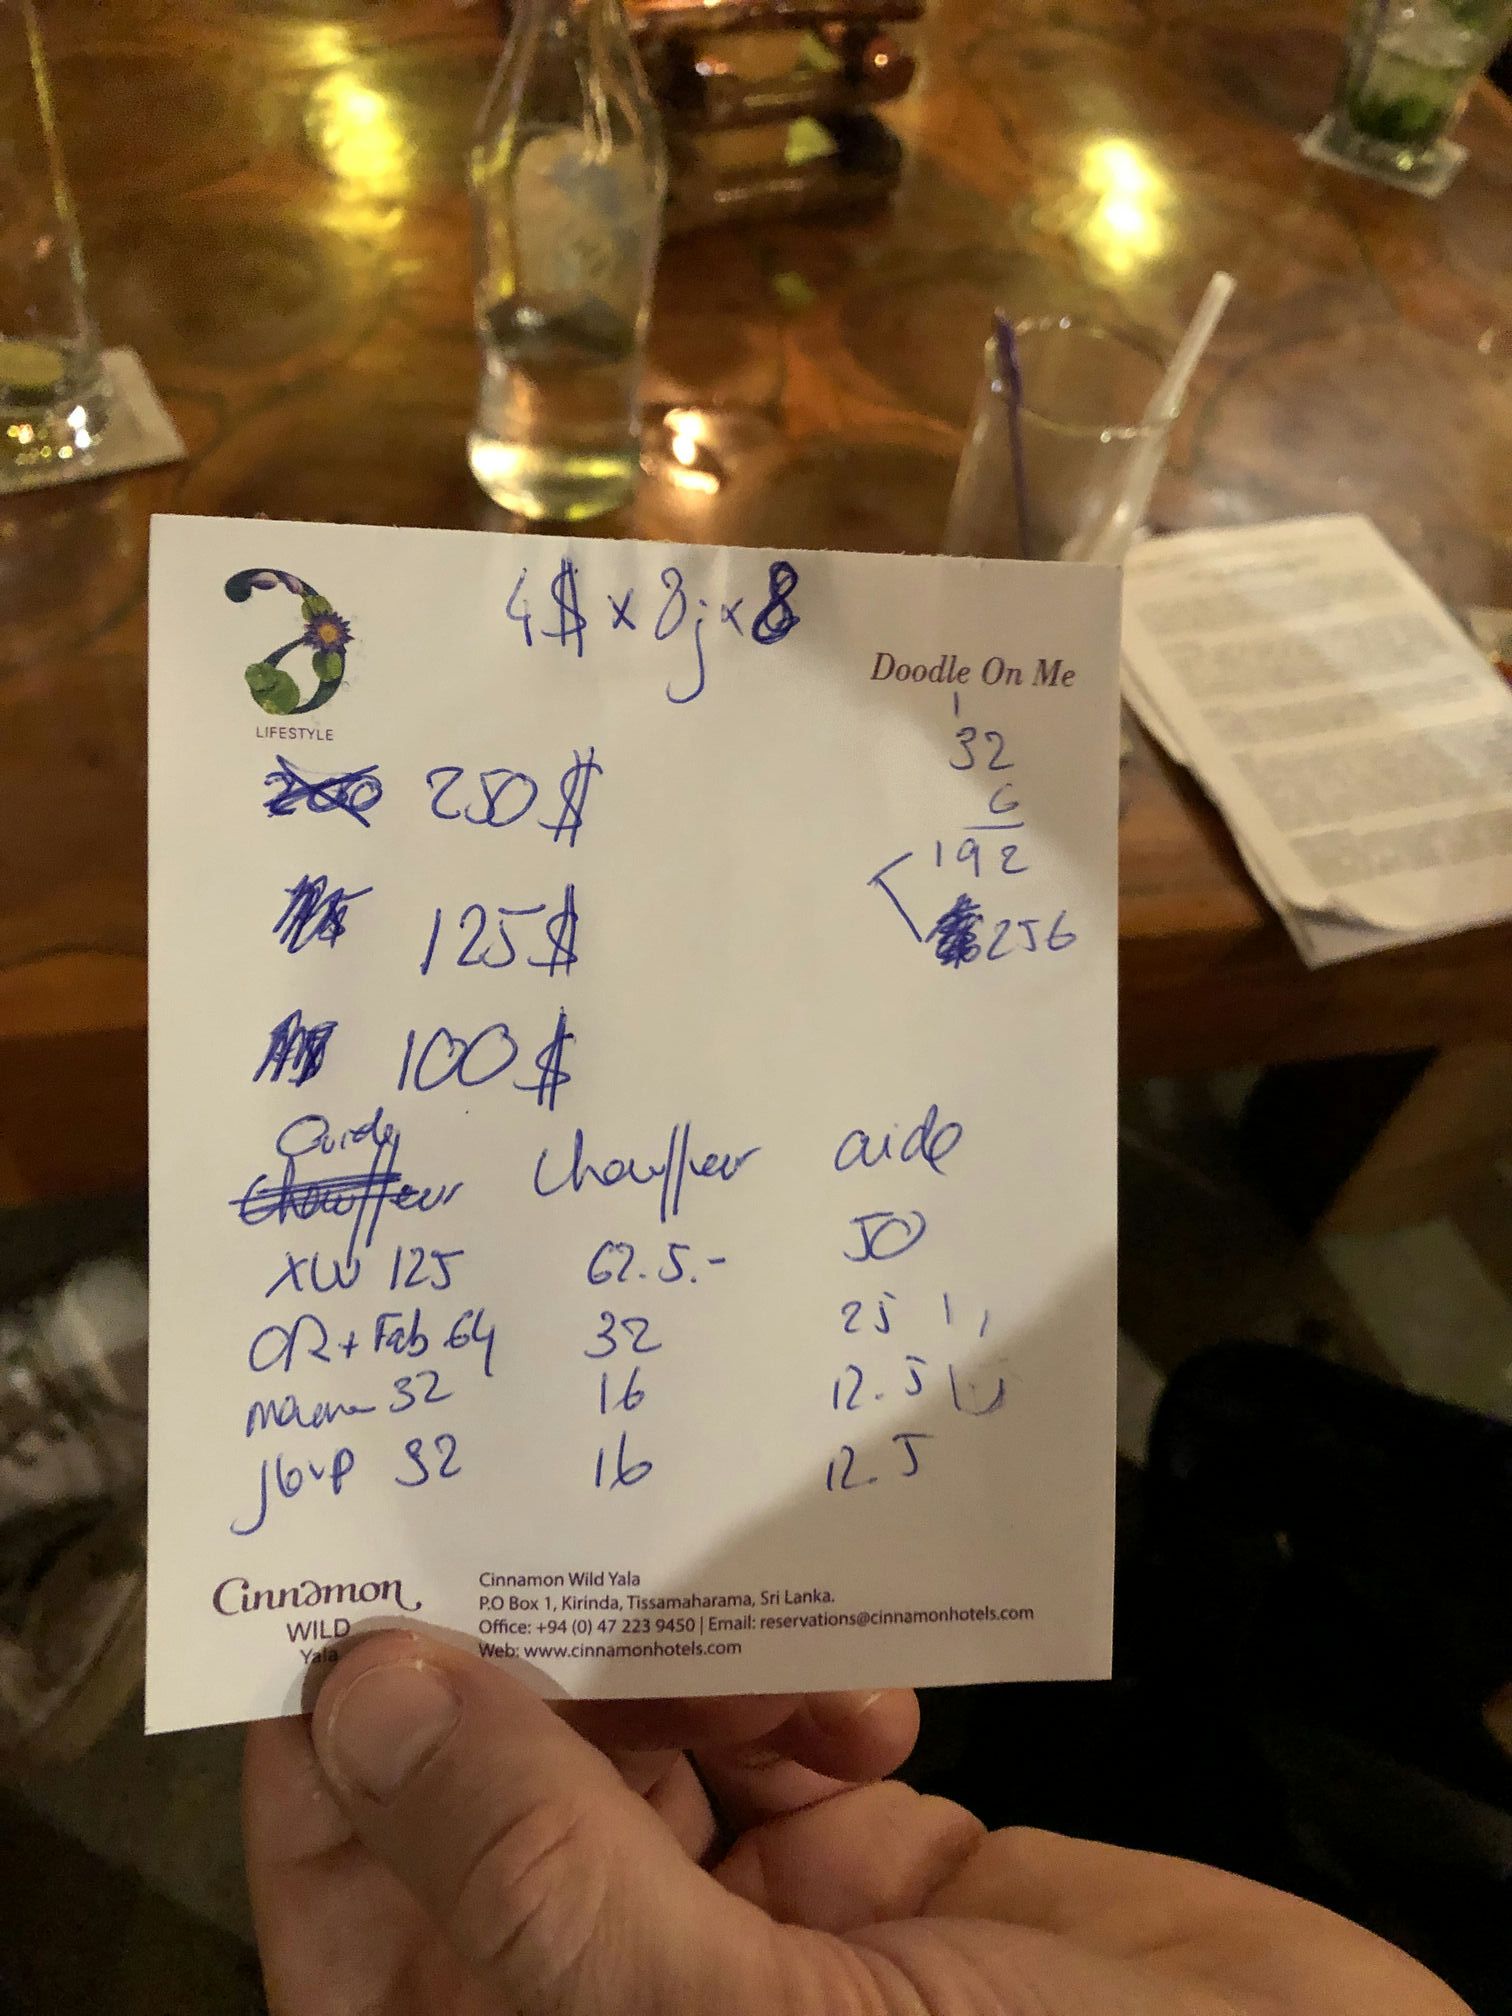 4$ x 8j x 8
LIFESTYLE
Doodle On Me
1
32
6
192
256
200 250$
125$
100$
Guide chauffeur aide
Chauffeur
XW 125 62.5.- 50
OR + Fab 64 32 25
32 16 12.5
32 16 12.5
Cinnamon
WILD
Yala
Cinnamon Wild Yala
P.O Box 1, Kirinda, Tissamaharama, Sri Lanka.
Office: +94 (0) 47 223 9450 | Email: reservations@cinnamonhotels.com
Web: www.cinnamonhotels.com